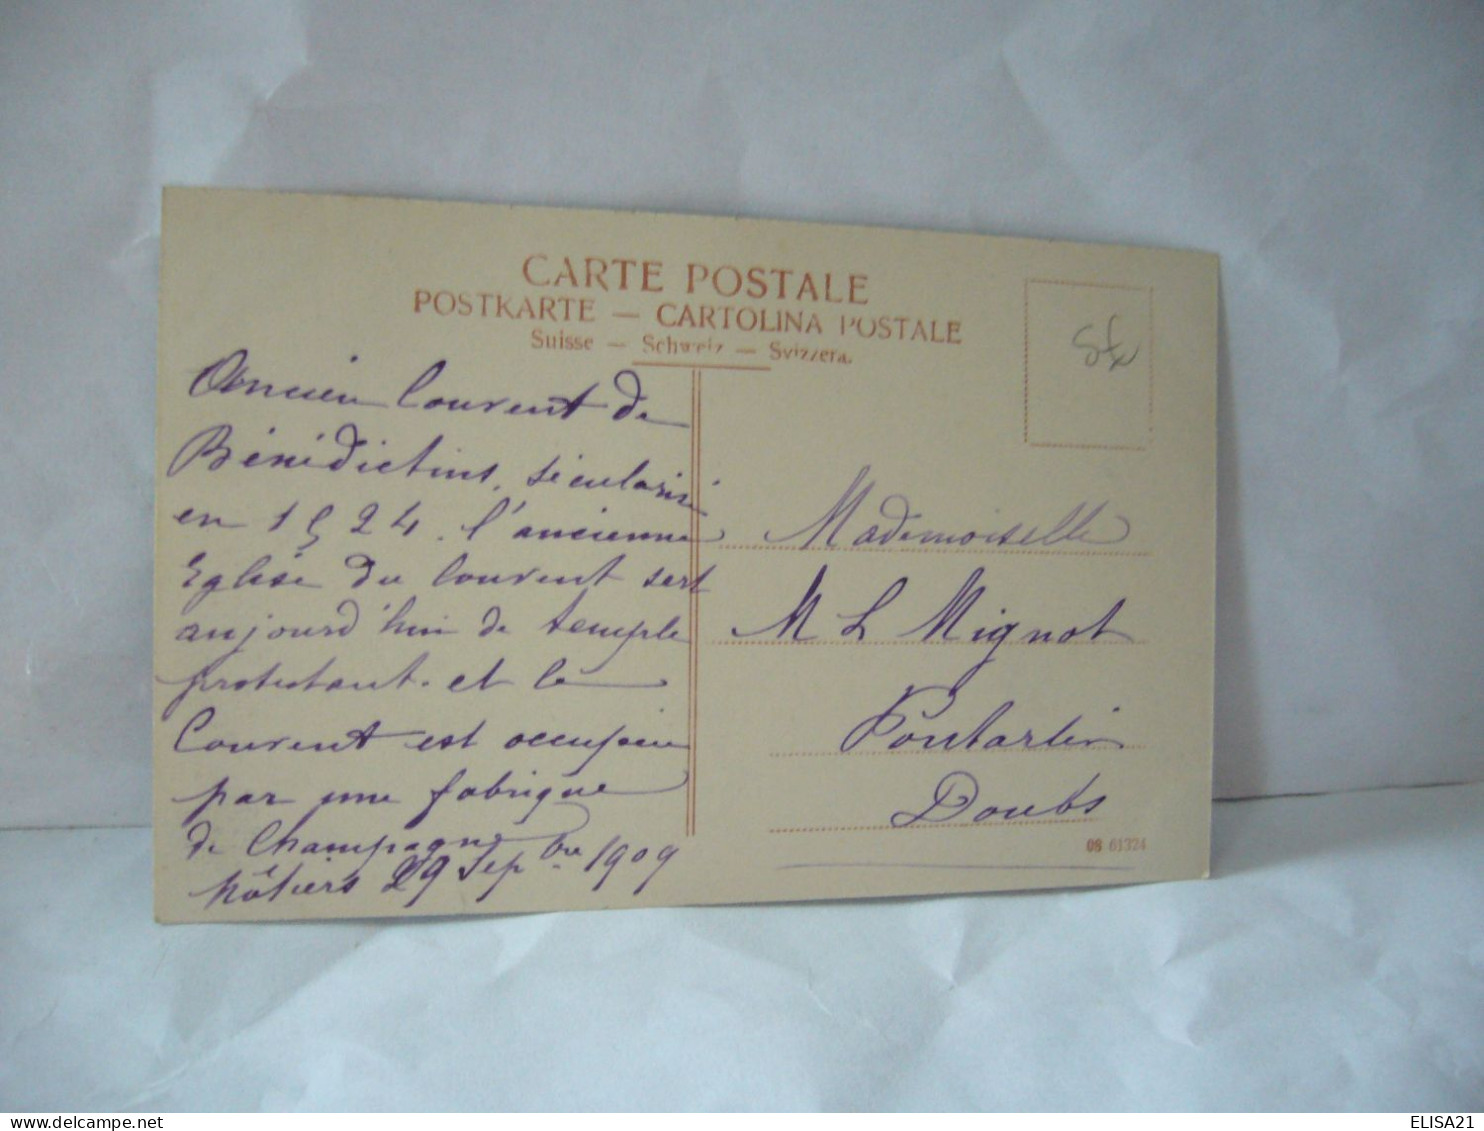 CARTE POSTALE
POSTKARTE — CARTOLINA POSTALE
Suisse — Schweiz — Svizzera.
Ancien Couvent de
Bénédictins, sécularisé
en 1524. l'ancienne
Eglise du Couvent sert
aujourd'hui de temple
protestant. et le
Couvent est occupée
par une fabrique
de Champagne
Môtiers 29 Sepbre 1909
Mademoiselle
M L Mignot
Pontarlier
Doubs
08 61324
ELISA21